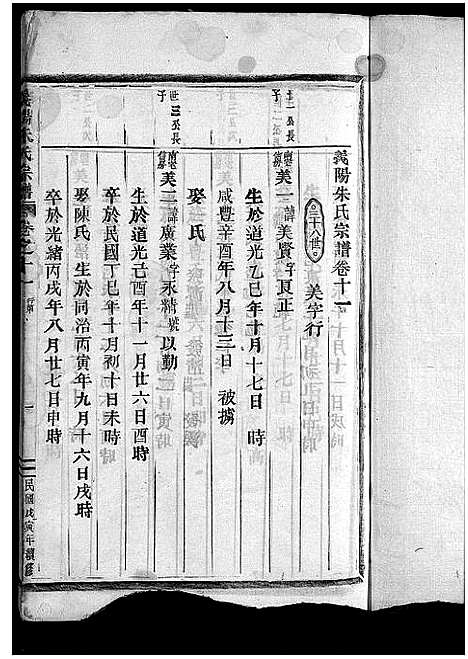 義陽朱氏宗譜卷十一
三十八世 美字行
美一 諱美賢字夏正
生於道光乙巳年十月十七日 時
咸豐辛酉年八月十三日 被擄
娶 氏
美二 諱廣業字永精號以勤
生於道光己酉年十一月廿六日酉時
卒於民國丁巳年十月初十日未時
娶陳氏 生於同治丙寅年九月十六日戌時
卒於光緒丙戌年八月廿七日申時
民國戊寅年續修